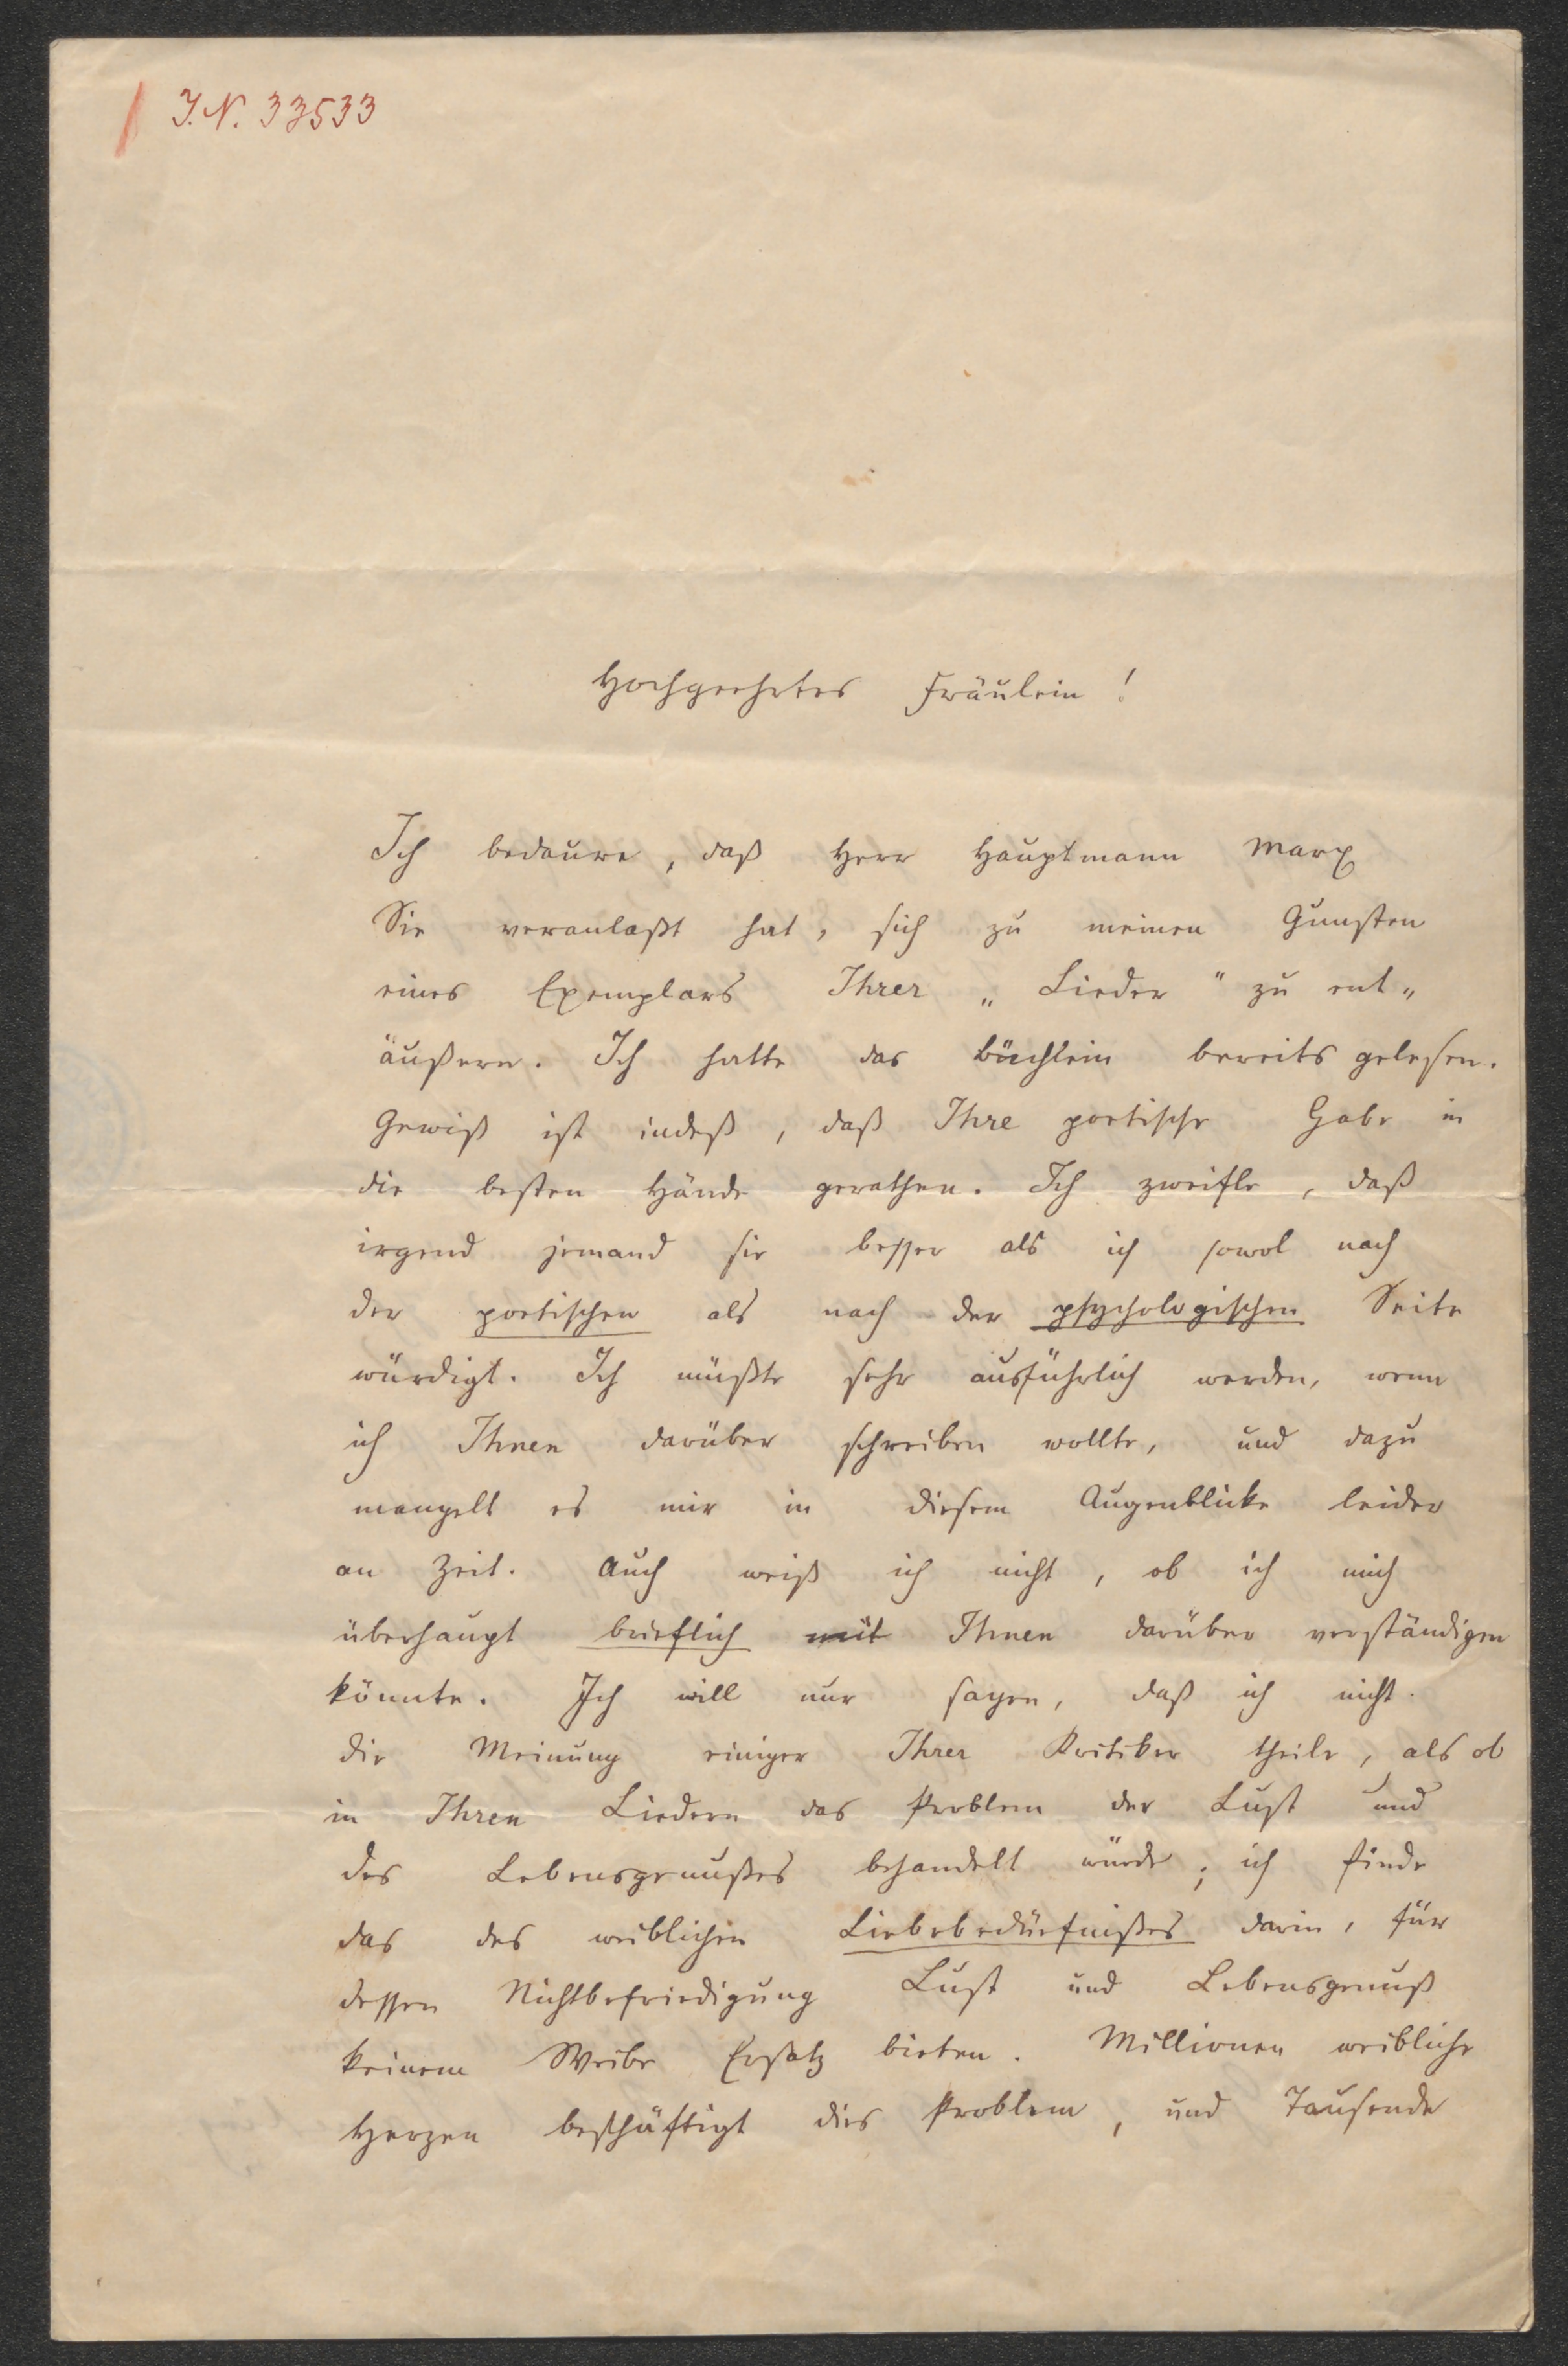 J.N. 33533
Hochgeehrtes Fräulein!
Ich bedaure, daß Herr Hauptmann Marx
Sie veranlaßt hat, sich zu meinen Gunsten
eines Exemplars Ihrer „Lieder" zu ent„
äußern. Ich hatte das Büchlein bereits gelesen.
Gewiß ist indeß, daß Ihre poetische Gabe in
die besten Hände gerathen. Ich zweifle, daß
irgend jemand sie besser als ich sowol nach
der poetischen als nach der psychologischen Seite
würdigt. Ich müßte sehr ausführlich werden, wenn
ich Ihnen darüber schreiben wollte, und dazu
mangelt es mir in diesem Augenblicke leider
an Zeit. Auch weiß ich nicht, ob ich mich
überhaupt brieflich mit Ihnen darüber verständigen
könnte. Ich will nur sagen, daß ich nicht
die Meinung einiger Ihrer Kritiker theile, als ob
in Ihren Liedern das Problem der Lust und
des Lebensgenußes behandelt würde; ich finde
das des weiblichen Liebebedürfnißes darin, für
dessen Nichtbefriedigung Lust und Lebensgenuß
keinem Weibe Ersatz bieten. Millionen weibliche
Herzen beschäftigt dies Problem, und Tausende